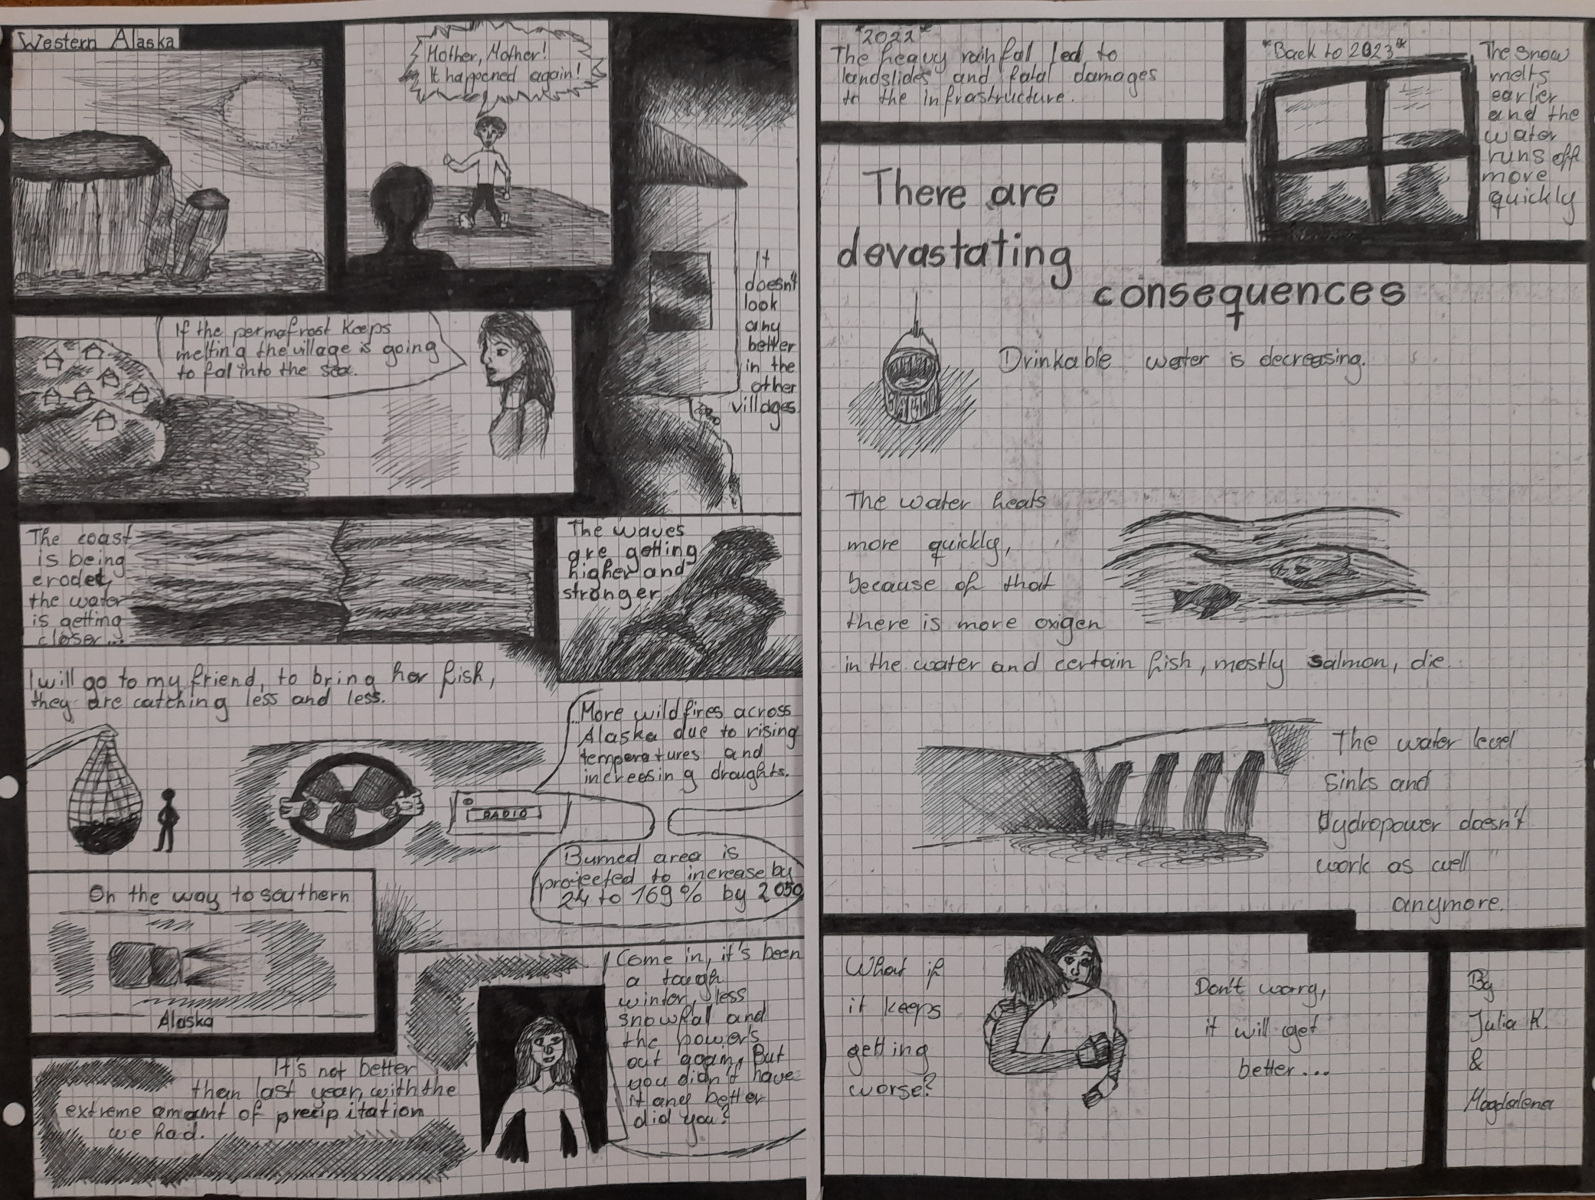 Western Alaska
Mother, Mother!
It happened again!
If the permafrost keeps
melting the village is going
to fal into the sea.
It
doesn't
look
any
better
in the
other
villages
The coast
is being
erodet,
the water
is getting
closer...
The waves
are getting
higher and
stronger
I will go to my friend, to bring her fish,
they are catching less and less.
More wildfires across
Alaska due to rising
temperatures and
increesing droughts.
RADIO
Burned area is
projected to increase by
24 to 169% by 2050
On the way to southern
Alaska
Come in, it's been
a tough
winter, less
snowfal and
the power's
out again. But
you didn't have
it any better
did you?
It's not better
than last year, with the
extreme amount of precipitation
we had.
*2022*
The heavy rainfal led to
landslides and fatal damages
to the infrastructure.
*Back to 2023*
The snow
melts
earlier
and the
water
runs off
more
quickly
There are
devastating
consequences
Drinkable water is decreasing.
The water heats
more quickly,
because of that
there is more oxigen
in the water and certain fish, mostly salmon, die.
The water level
sinks and
Hydropower doesn't
work as well
anymore.
What if
it keeps
getting
worse?
Don't worry,
it will get
better....
By
Julia K.
&
Magdalena